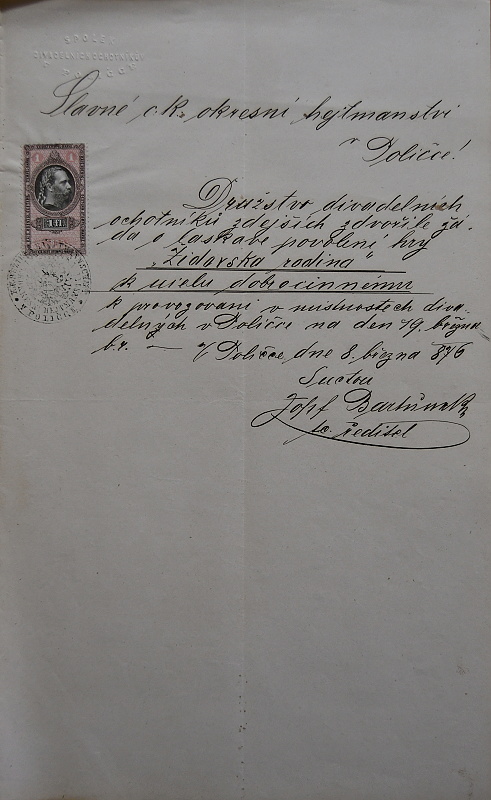 SPOLEK
DIVADELNÍCH OCHOTNÍKŮ
Slavné c. k. okresní hejtmanství
v Poličce!
1
1
Družstvo divadelních
ochotníků zdejších zdvořile žá-
dá o laskavé povolení hry
„Židovska rodina“
k účelu dobročinnému
k provozovaní v místnostech diva-
delných v Poličce na den 19. března
b. r. — V Poličce, dne 8. března 876
Josef Bartůněk
ředitel